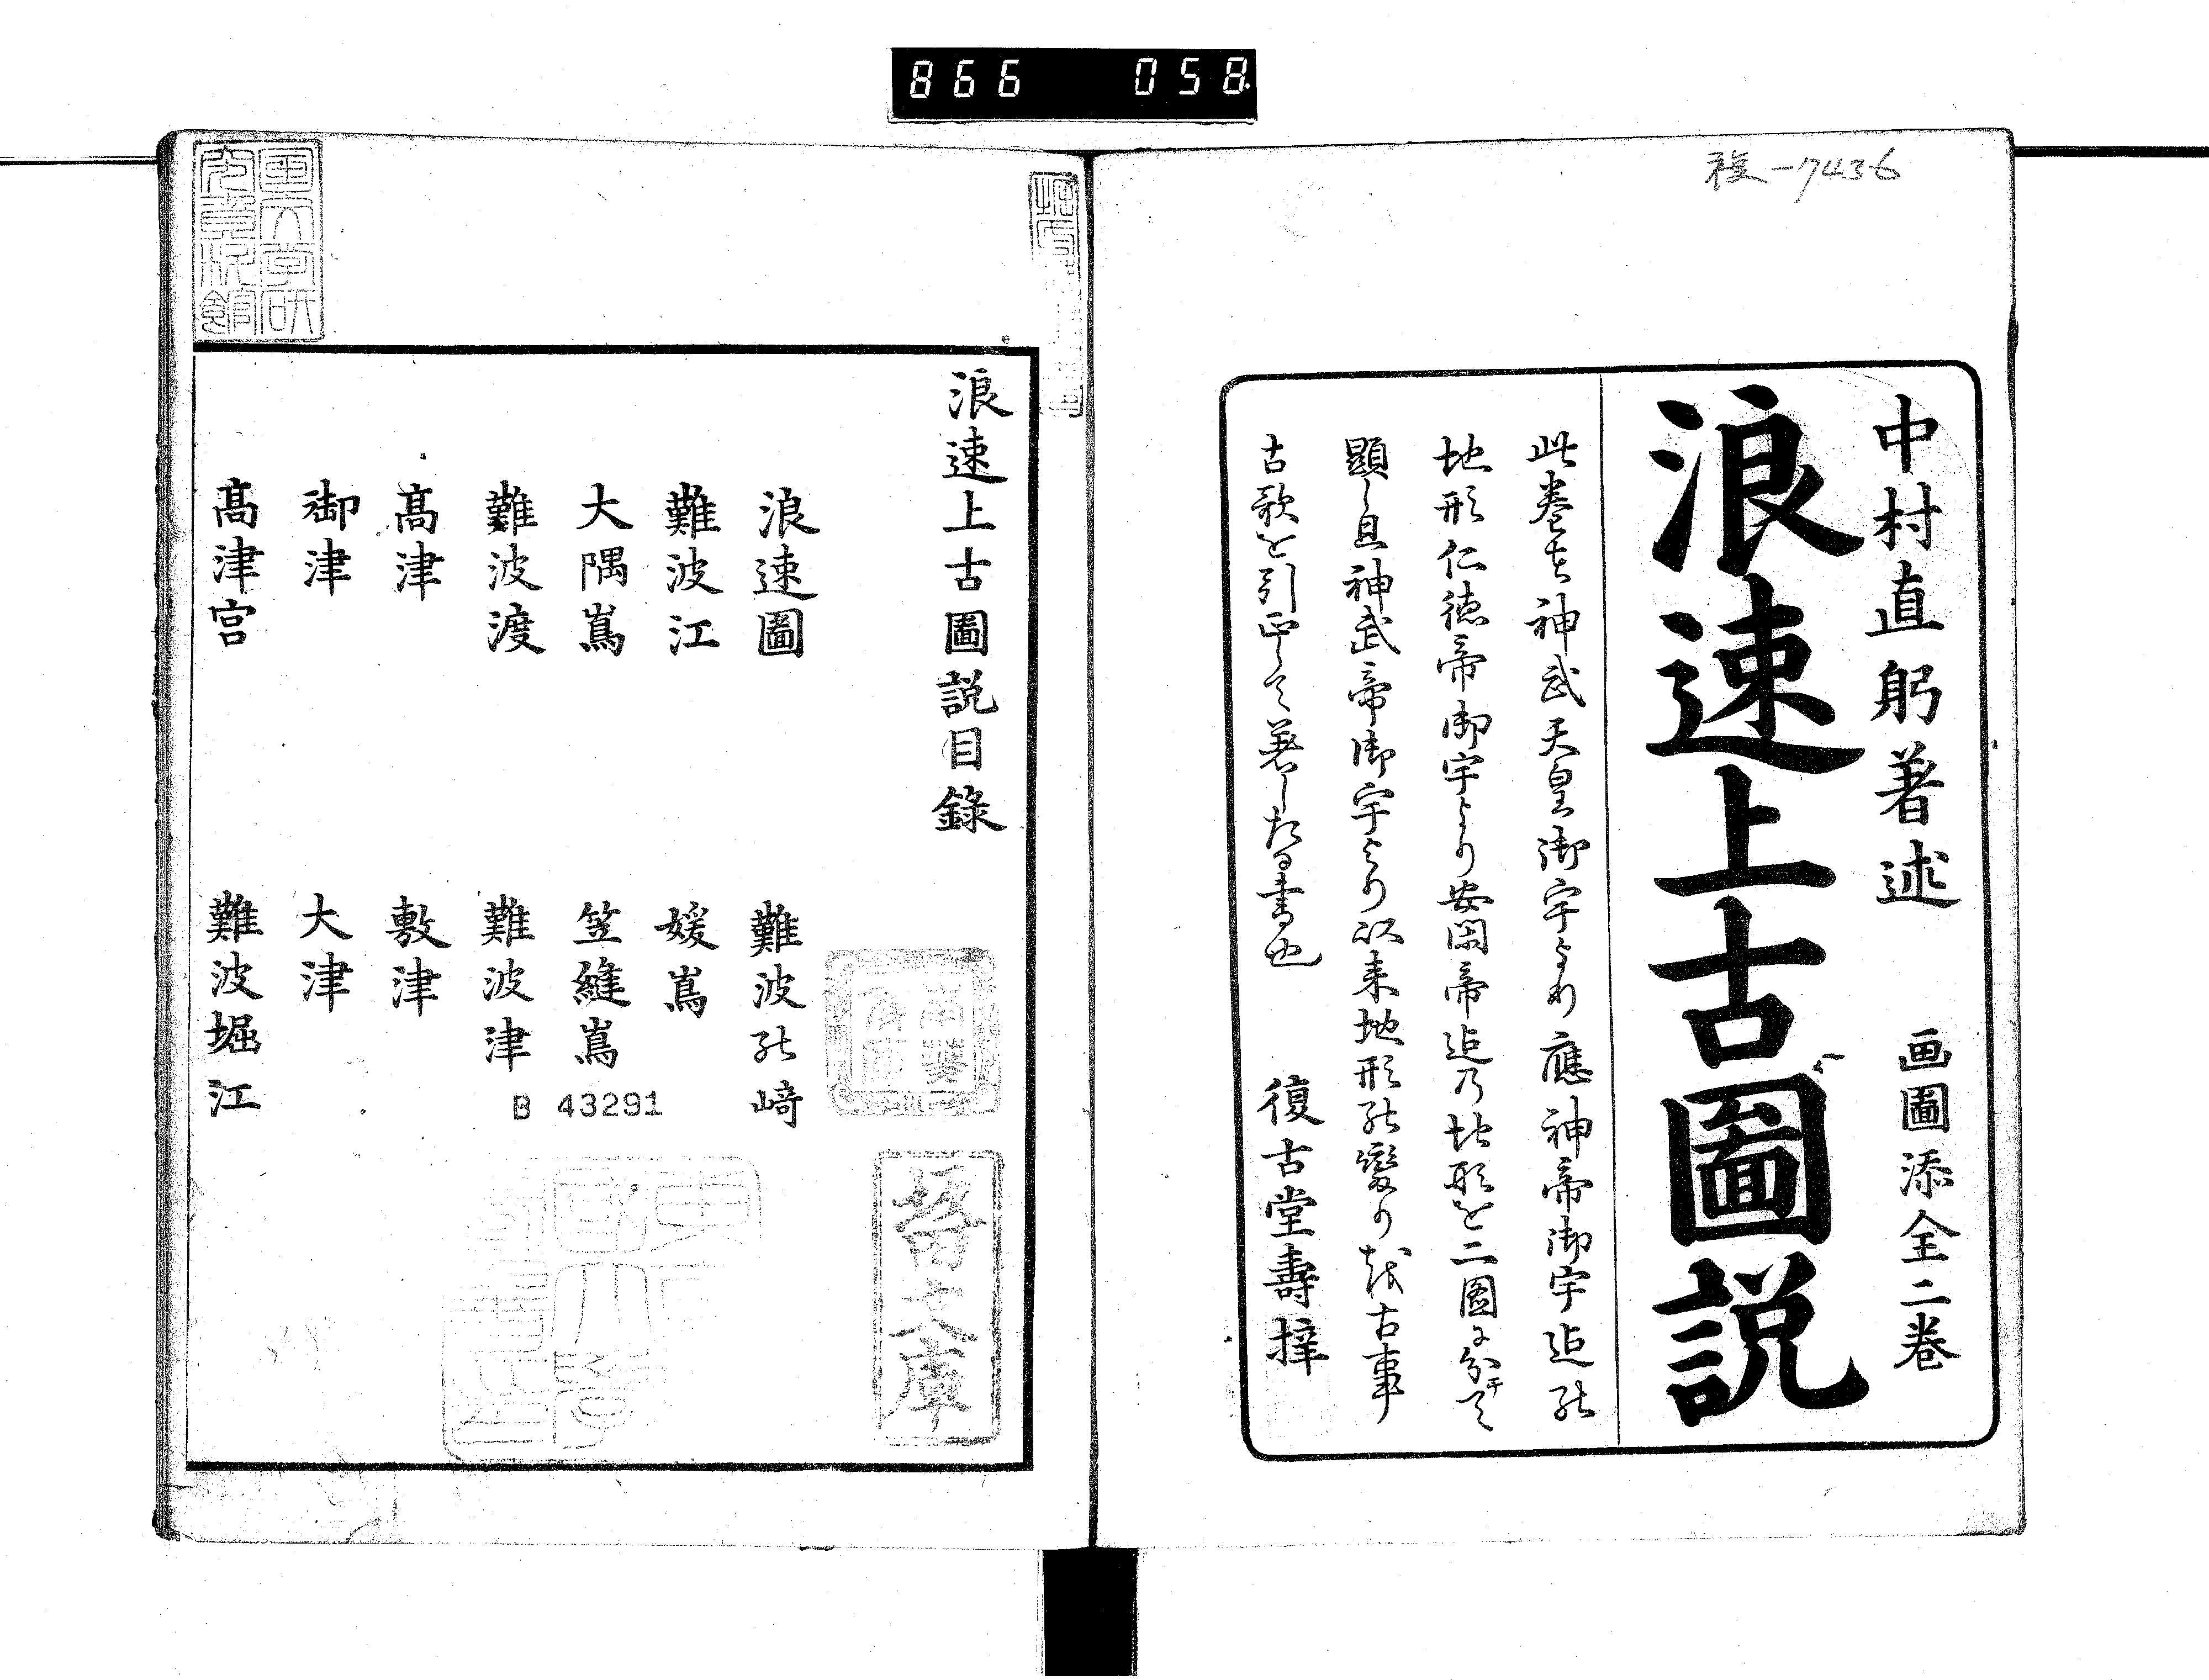 866 058
複-7436
中村直躬著述 画圖添全二巻
浪速上古圖説
此巻は神武天皇御宇より應神帝御宇迄の
地形仁徳帝御宇より安閑帝迄乃地形を二圖に分チて
顕し且神武帝御宇より以来地形の變りたる古事
古歌を引正して著したる書也 復古堂壽梓
浪速上古圖説目録
浪速圖 難波の﨑
難波江 媛嶌
大隅嶌 笠縫嶌
難波渡 難波津
高津 敷津
御津 大津
高津宮 難波堀江
B 43291